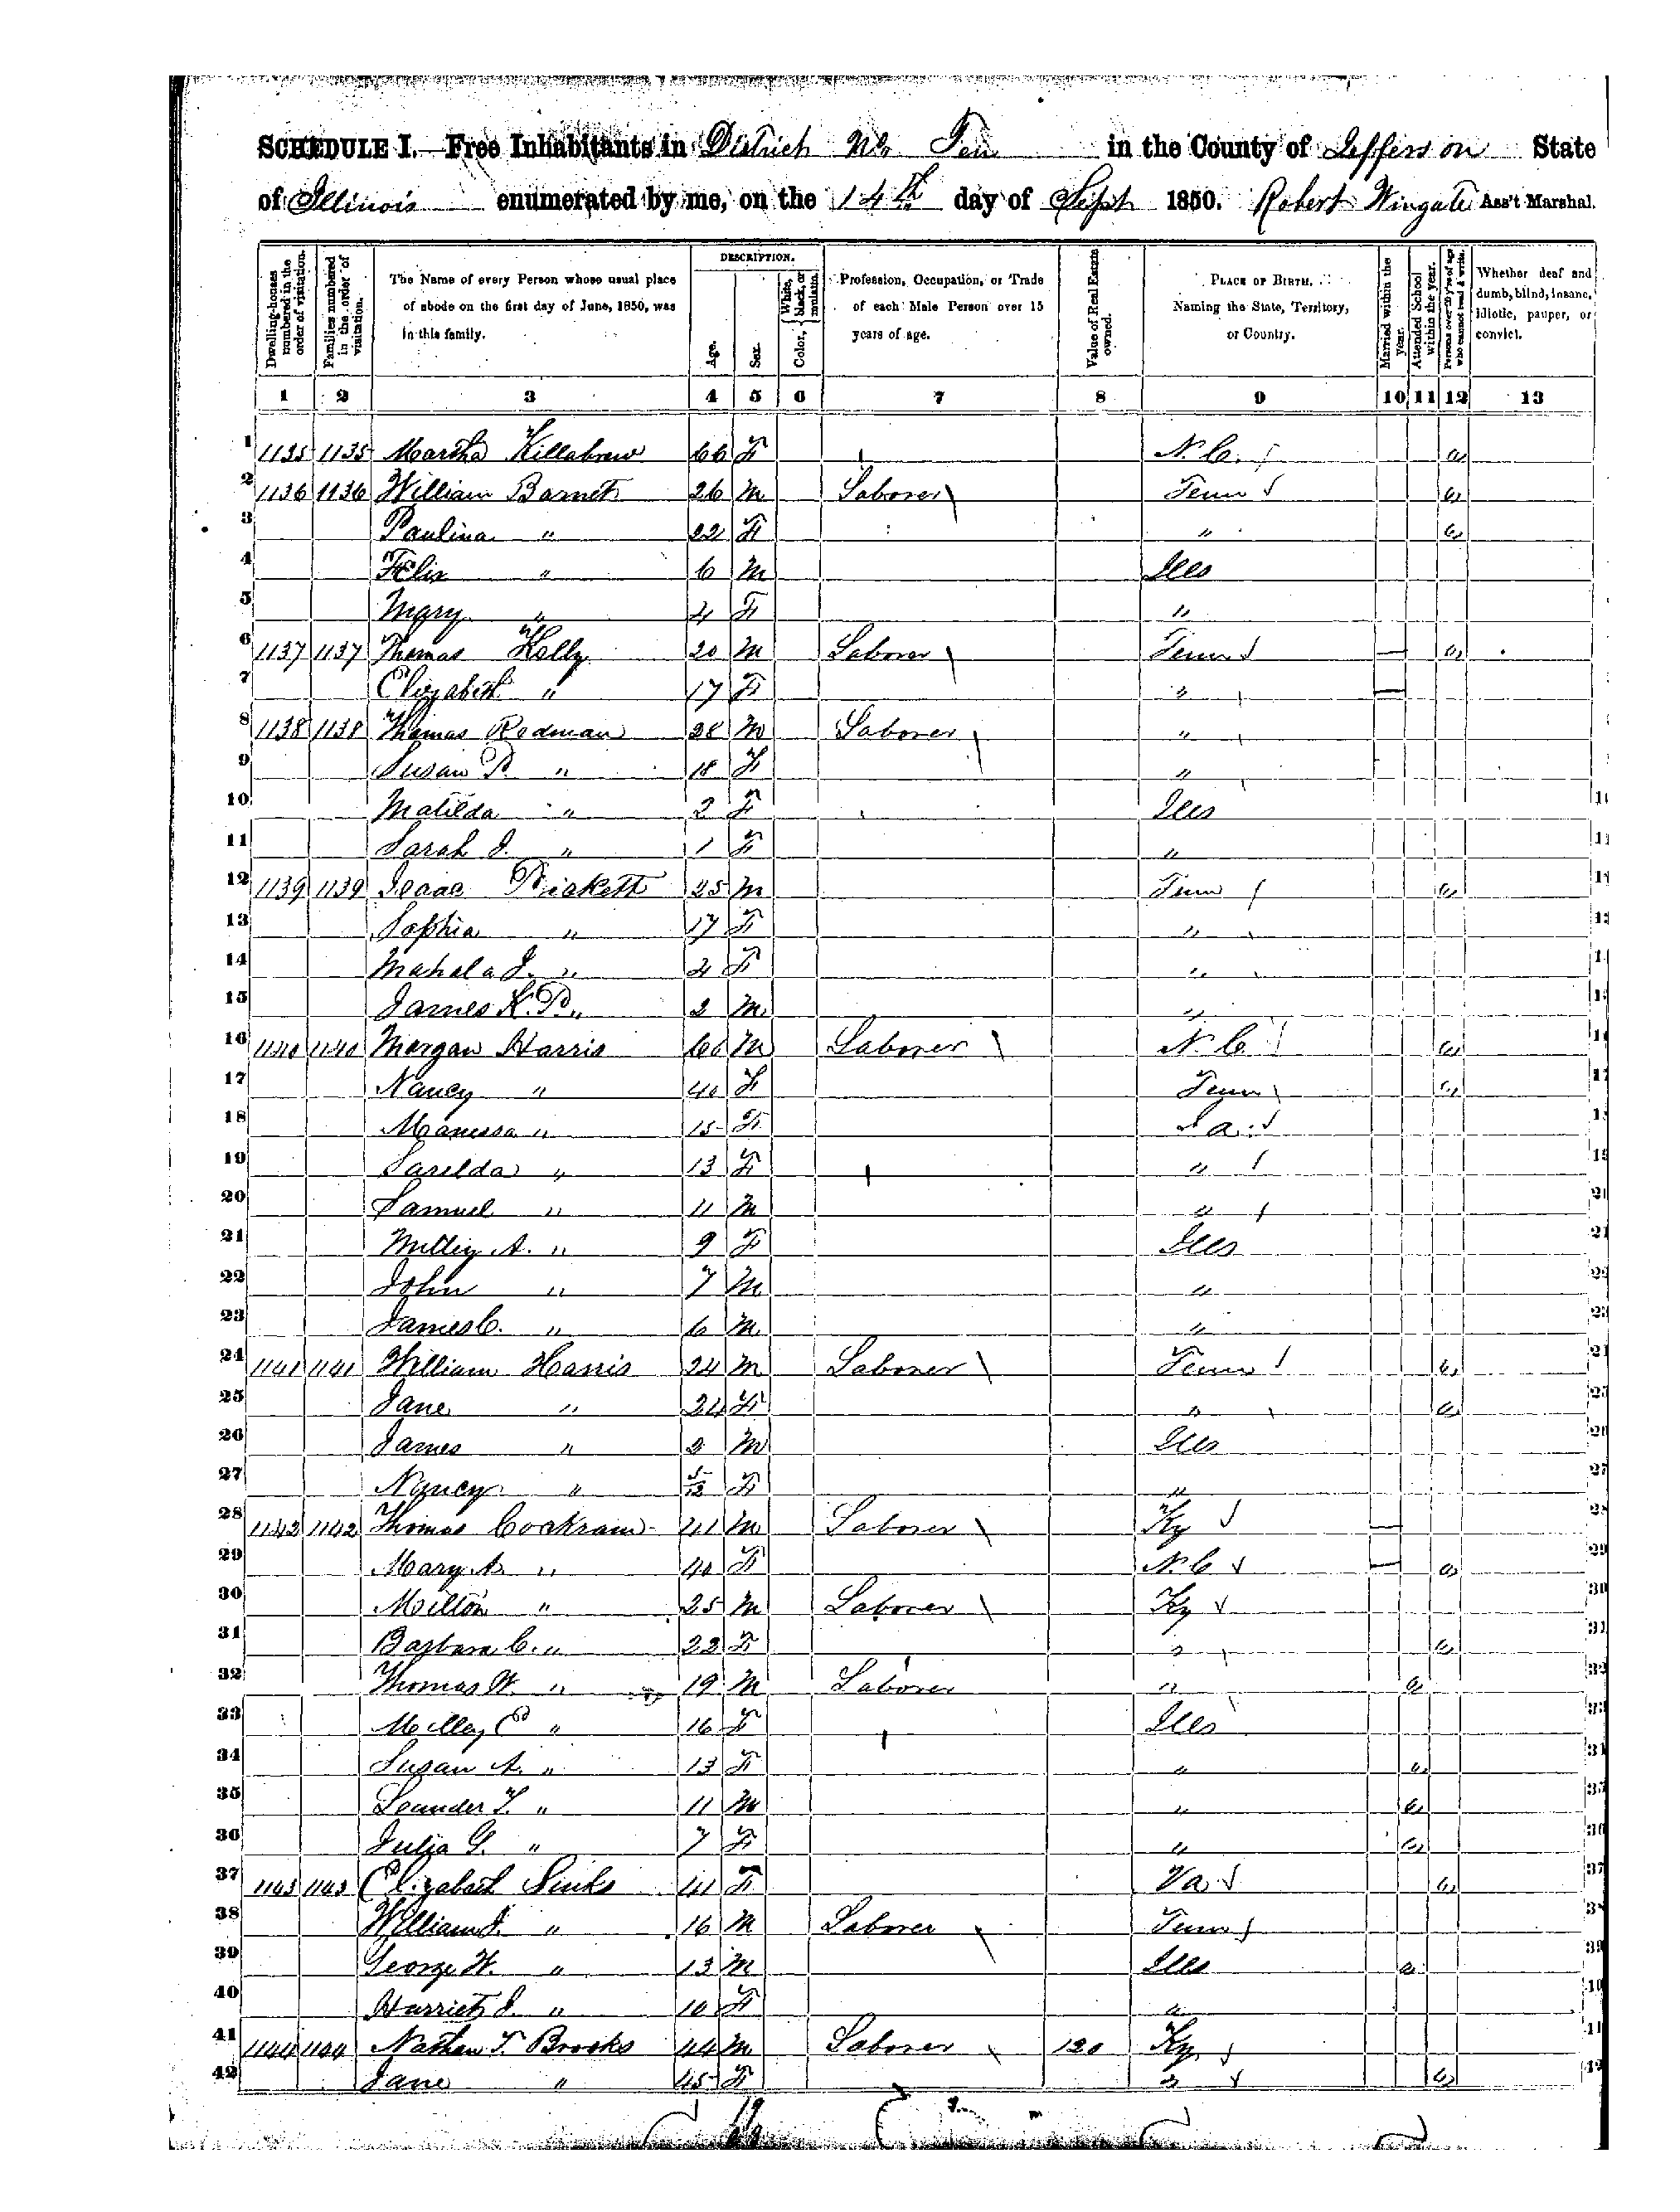 SCHEDULE I.—Free Inhabitants in District No Ten in the County of Jefferson State
of Illinois enumerated by me, on the 14th day of Sept 1850. Robert Wingate Ass't Marshal.
Dwelling-houses numbered in the order of visitation.
Families numbered in the order of visitation.
The Name of every Person whose usual place of abode on the first day of June, 1850, was in this family.
DESCRIPTION.
Age.
Sex.
Color, White, black, or mulatto.
Profession, Occupation, or Trade of each Male Person over 15 years of age.
Value of Real Estate owned.
PLACE OF BIRTH. Naming the State, Territory, or Country.
Married within the year.
Attended School within the year.
Persons over 20 y'rs of age who cannot read & write.
Whether deaf and dumb, blind, insane, idiotic, pauper, or convict.
1 2 3 4 5 6 7 8 9 10 11 12 13
1 1135 1135 Martha Killabrew 66 F N.C.
2 1136 1136 William Barnet 26 M Laborer Tenn
3 Paulina " 22 F "
4 Felix " 6 M Ills
5 Mary " 4 F "
6 1137 1137 Thomas Kelly 20 M Laborer Tenn
7 Elizabeth " 17 F "
8 1138 1138 Thomas Redman 28 M Laborer "
9 Susan P. " 18 F "
10 Matilda " 2 F Ills
11 Sarah J. " 1 F "
12 1139 1139 Isaac Pickett 25 M Tenn
13 Sophia " 17 F "
14 Mahala J. " 4 F "
15 James K. P. " 2 M "
16 1140 1140 Morgan Harris 60 M Laborer N.C.
17 Nancy " 40 F Tenn
18 Manessa " 15 F
19 Sarelda " 13 F "
20 Samuel " 11 M "
21 A. " 9 F Ills
22 John " 7 M "
23 James C. " 6 M "
24 1141 1141 William Harris 24 M Laborer Tenn
25 Jane " 24 F "
26 James " 2 M Ills
27 Nancy " 5/12 F "
28 1142 1142 Thomas Cockram 41 M Laborer Ky
29 Mary A. " 40 F N.C
30 Milton " 25 M Laborer Ky
31 Barbara C. " 22 F "
32 Thomas W. " 19 M Laborer "
33 Milley E " 16 F Ills
34 Susan A. " 13 F "
35 Leander T. " 11 M "
36 Julia G. " 7 F "
37 1143 1143 Elizabeth Sinks 41 F Va
38 William J. " 16 M Laborer Tenn
39 George W. " 13 M Ills
40 Harriet J. " 10 F "
41 1144 1144 Nathan T. Brooks 44 M Laborer 120 Ky
42 Jane " 45 F "